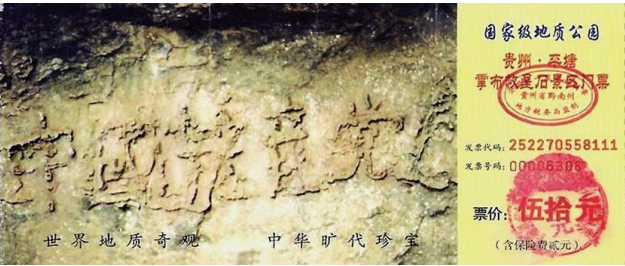 中国共产党亡
世界地质奇观 中华旷代珍宝
国家级地质公园
贵州·平塘
掌布救星石景区门票
贵州省黔南州
地方税务局监制
发票代码: 252270558111
发票号码: 00006306
票价: 伍拾元
(含保险费贰元)